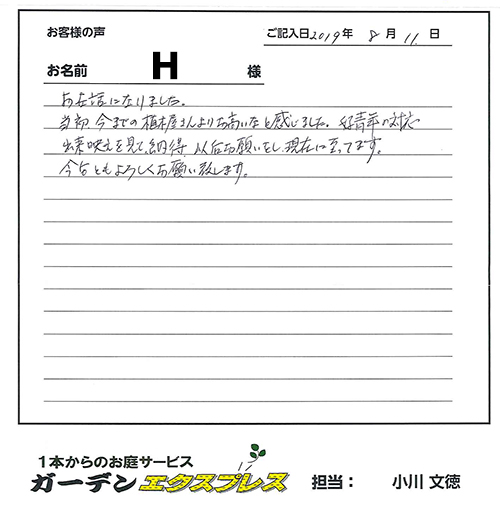 お客様の声
ご記入日2019年 8月 11日
お名前 H 様
お世話になりました。
当初、今までの植木屋さんよりお高いなと感じました。好青年の対応
出来映えを見て、納得、以后お願いをし、現在に至ってます。
今后ともよろしくお願い致します。
1本からのお庭サービス
ガーデンエクスプレス 担当： 小川 文徳